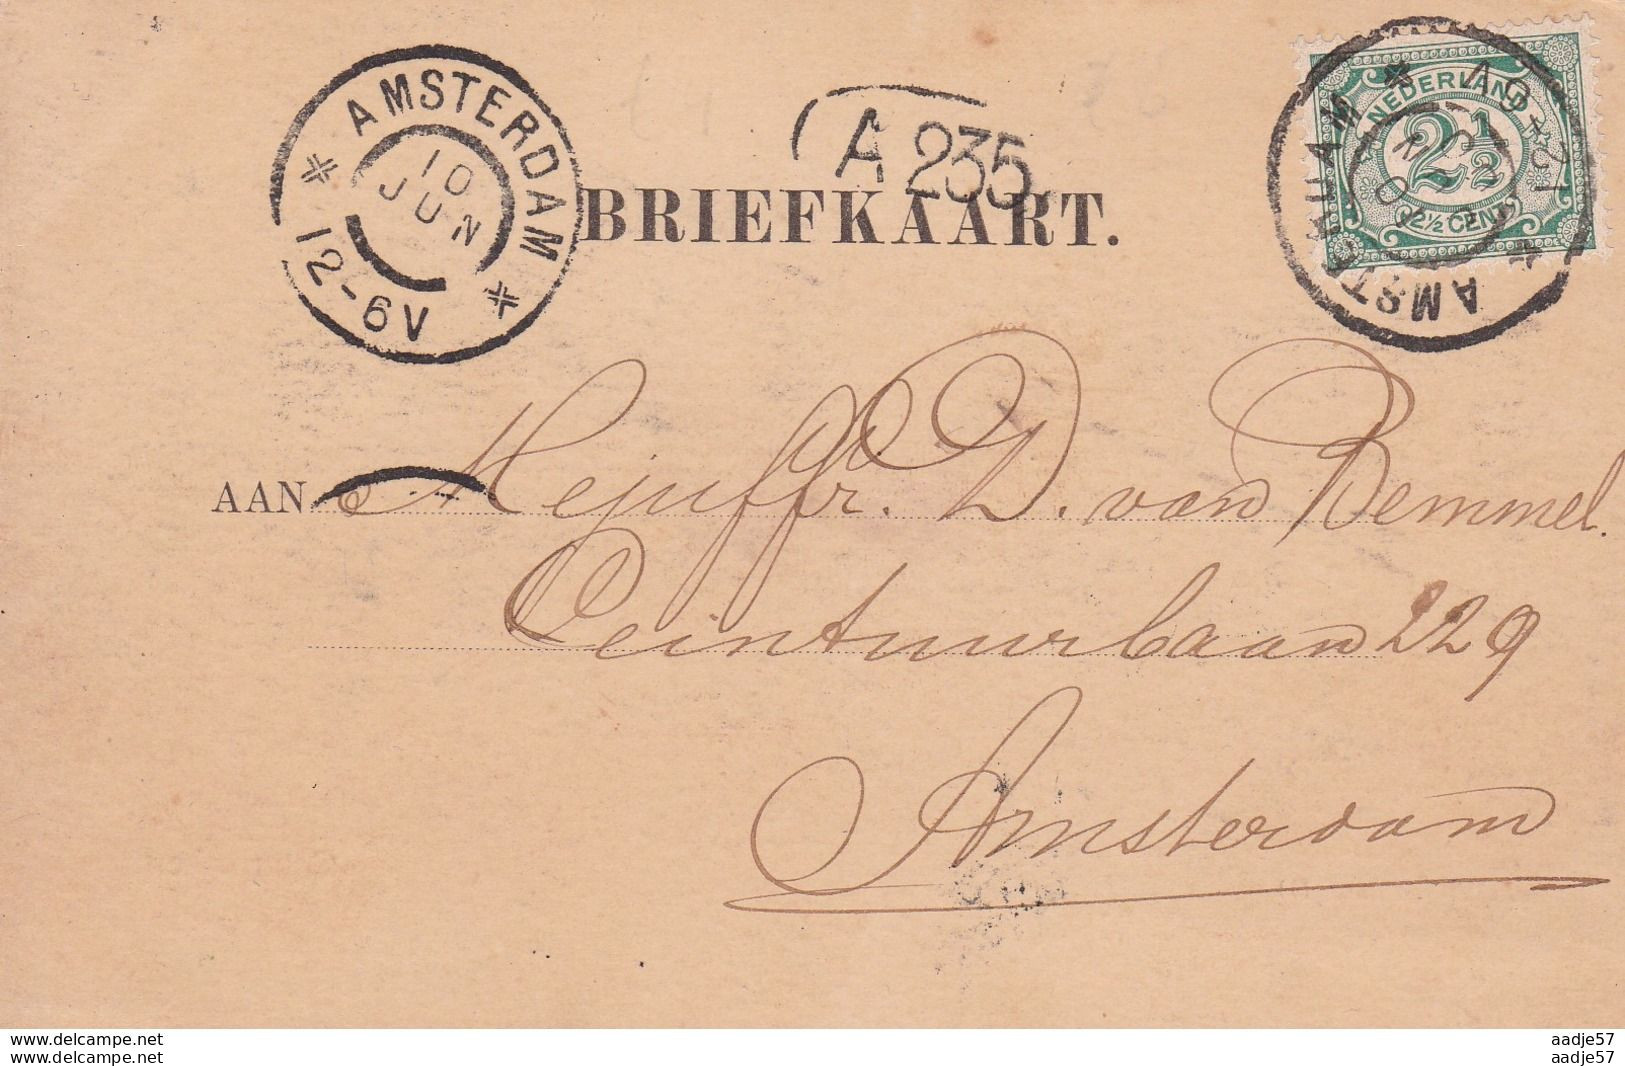 AMSTERDAM
10
JUN
12-6V
A 235
BRIEFKAART.
NEDERLAND
2 1/2
2½ CENT
AMSTERDAM
AAN Mejuffr. D. van Bemmel.
Ceintuurbaan 229
Amsterdam
www.delcampe.net
www.delcampe.net
aadje57
aadje57